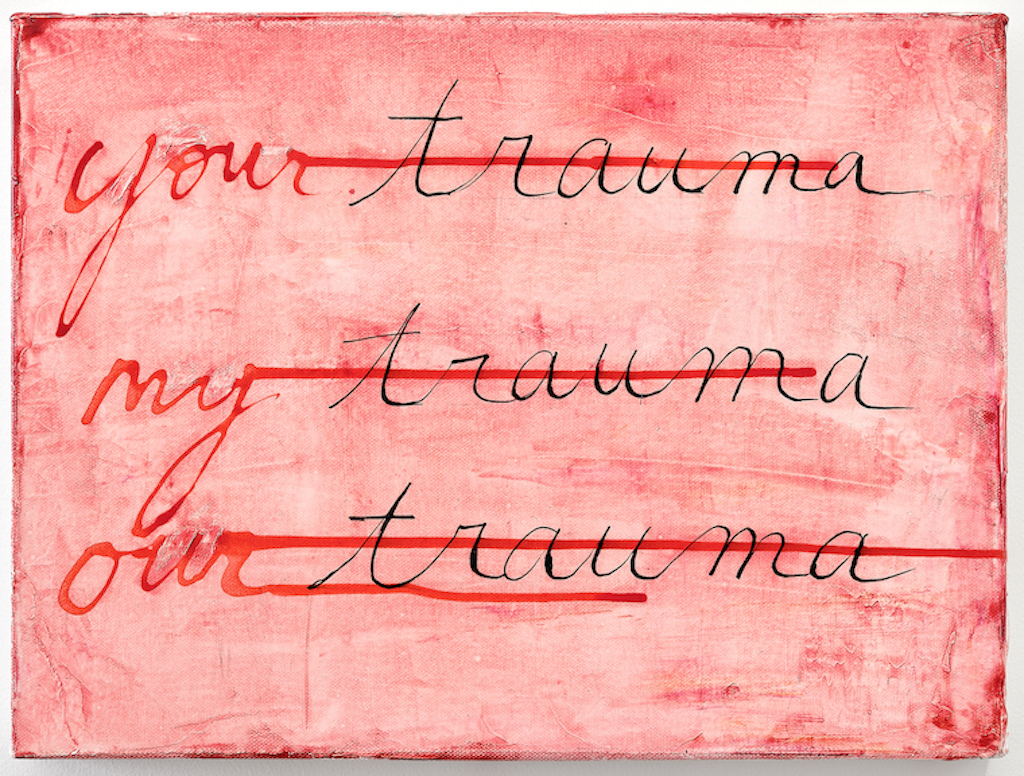 your trauma
my trauma
our trauma